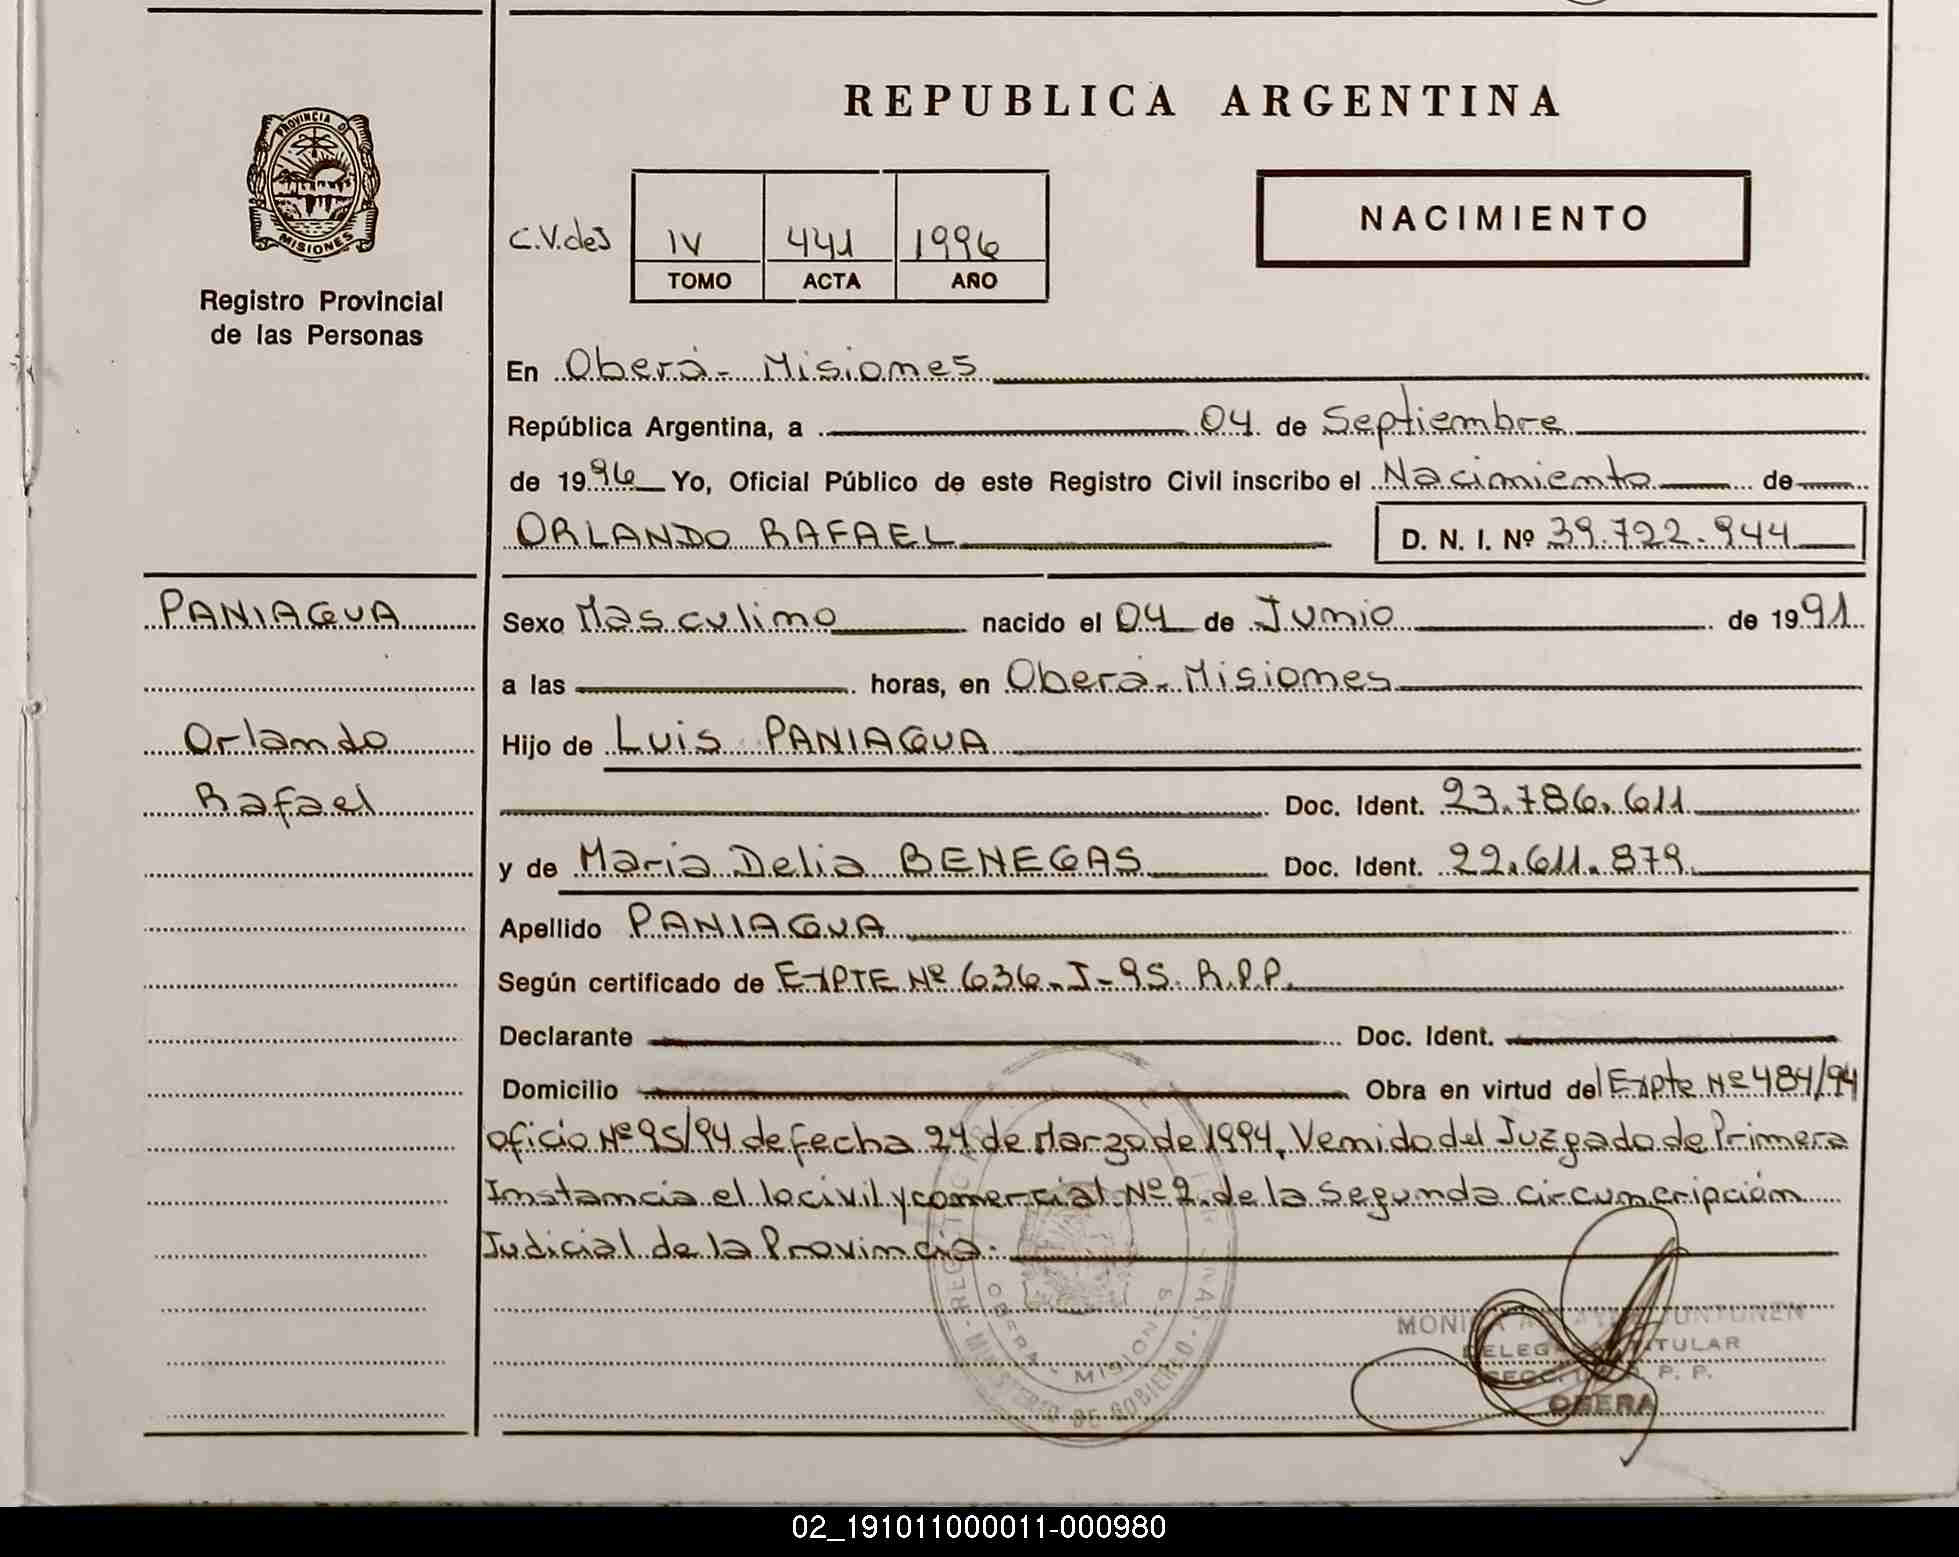 REPUBLICA ARGENTINA
PROVINCIA DE
MISIONES
Registro Provincial
de las Personas
C.V.des
IV 441 1996
TOMO ACTA AÑO
NACIMIENTO
En Oberá - Misiones
República Argentina, a 04 de Septiembre
de 1996 Yo, Oficial Público de este Registro Civil inscribo el Nacimiento de
ORLANDO RAFAEL D. N. I. Nº 39.722.944
PANIAGUA
Orlando
Rafael
Sexo Masculino nacido el 04 de Junio de 1991
a las horas, en Oberá - Misiones
Hijo de Luis PANIAGUA
Doc. Ident. 23.786.611
y de Maria Delia BENEGAS Doc. Ident. 22.611.879
Apellido PANIAGUA
Según certificado de EXPTE Nº 636-J-95. R.P.P.
Declarante Doc. Ident.
Domicilio Obra en virtud del Expte Nº 484/94
oficio Nº 95/94 de fecha 24 de Marzo de 1994, Venido del Juzgado de Primera
Instancia el lo civil y comercial Nº 2 de la Segunda circuncripción
Judicial de la Provincia.
OBERA - MISIONES
MINISTERIO DE GOBIERNO
TITULAR
R. P. P.
OBERA
02_191011000011-000980